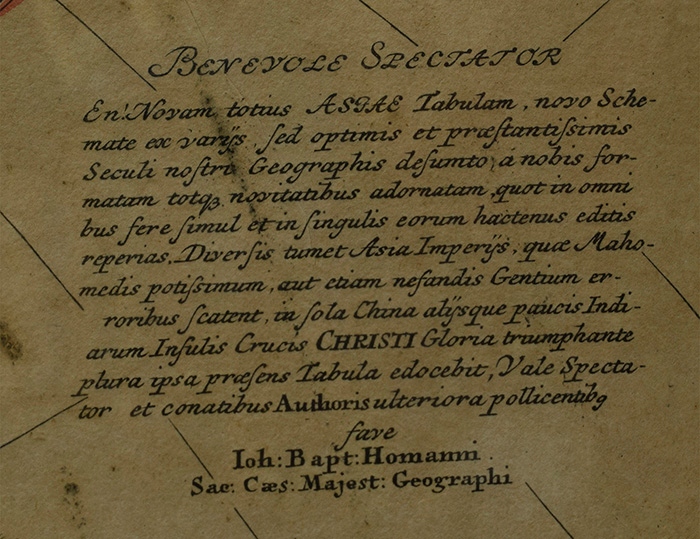 BENEVOLE SPECTATOR
En! Novam totius ASIAE Tabulam, novo Sche-
mate ex varijs, sed optimis et præstantiſsimis
Seculi noſtri Geographis deſumto, á nobis for-
matam totq₃ novitatibus adornatam, quot in omni
bus fere ſimul et in ſingulis eorum hactenus editis
reperias. Diverſis tumet Asia Imperijs, quæ Maho-
medis potiſsimum, aut etiam nefandis Gentium er-
roribus ſcatent, in ſola China alijsque paucis Indi-
arum Inſulis Crucis CHRISTI Gloria triumphante
plura ipsa præſens Tabula edocebit, Vale Specta-
tor et conatibus Authoris ulteriora pollicentibꝯ
fave
Ioh: Bapt: Homanni.
Sac: Cæs: Majest: Geographi